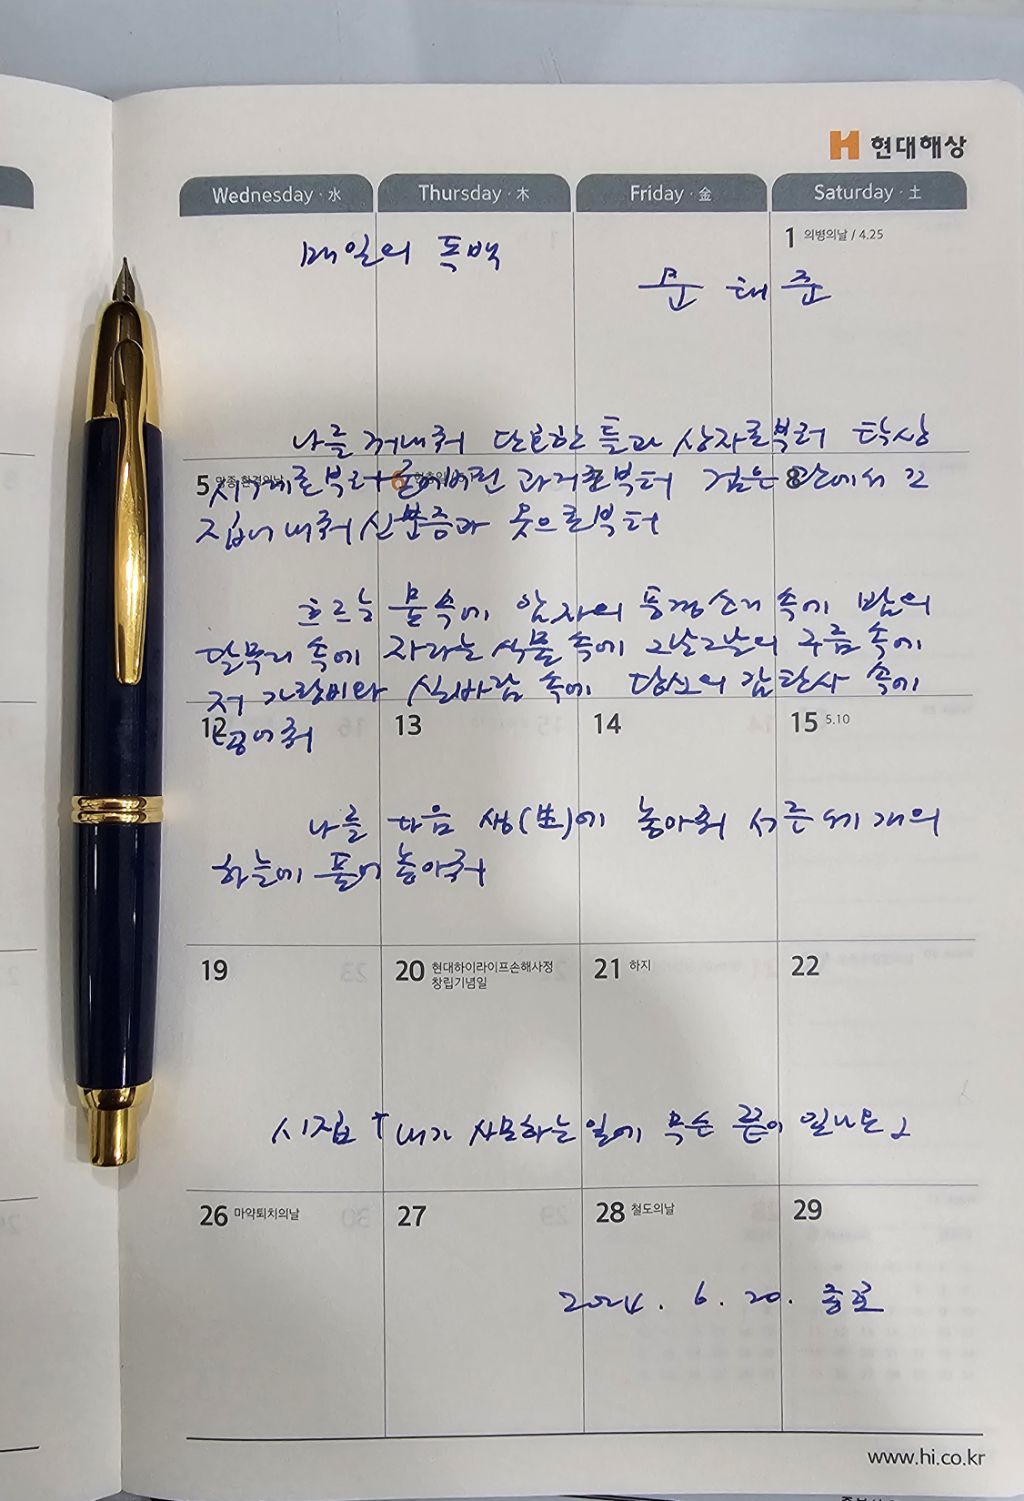 현대해상
Wednesday · 水 Thursday · 木 Friday · 金 Saturday · 土
1 의병의날 / 4.25
매일의 독백
문 태 준
나를 꺼내줘 단호한 틀과 상자로부터 탁상
5 망종 환경의날 6 현충일 8
시계로부터 굳어버린 과거로부터 검은 관에서 끄
집어 내줘 신분증과 못으로부터
흐르는 물속에 암자의 풍경소리 속에 밤의
달무리 속에 자라는 식물 속에 그날그날의 구름 속에
저 가랑비와 실바람 속에 당신의 감탄사 속에
12 13 14 15 5.10
넣어줘
나를 다음 생(生)에 놓아줘 서른세 개의
하늘에 풀어 놓아줘
19 20 현대하이라이프손해사정 21 하지 22
창립기념일
시집 『내가 사모하는 일에 무슨 끝이 있나요』
26 마약퇴치의날 27 28 철도의날 29
2024. 6. 20. 종로
www.hi.co.kr